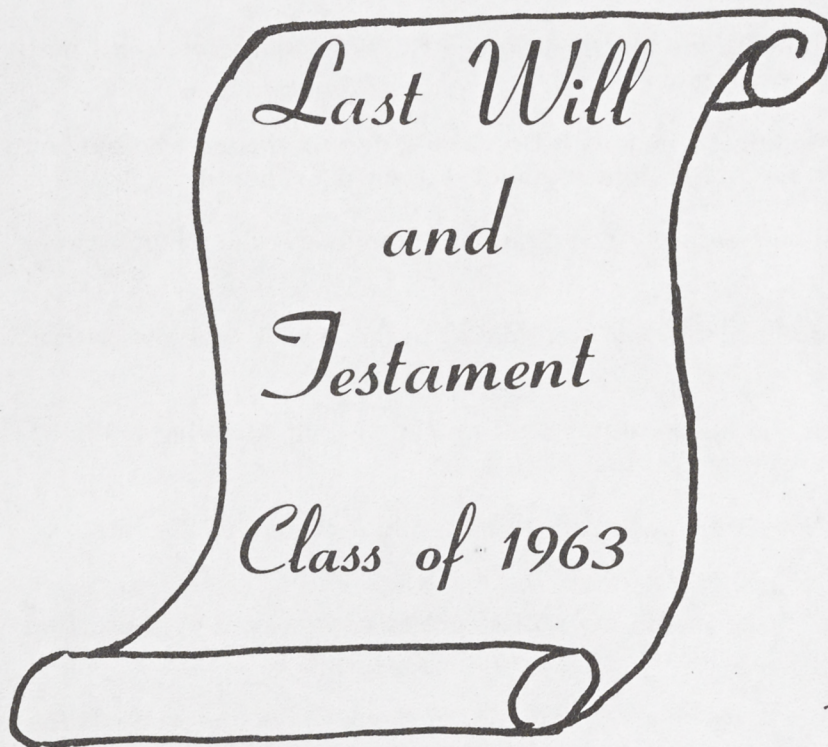 Last Will
and
Testament
Class of 1963